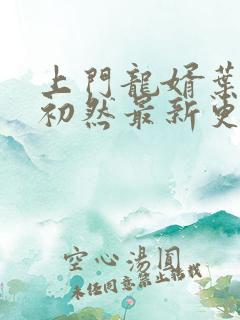 上門龍婿葉
初然最新更
空心湯圓
未经同意禁止转载